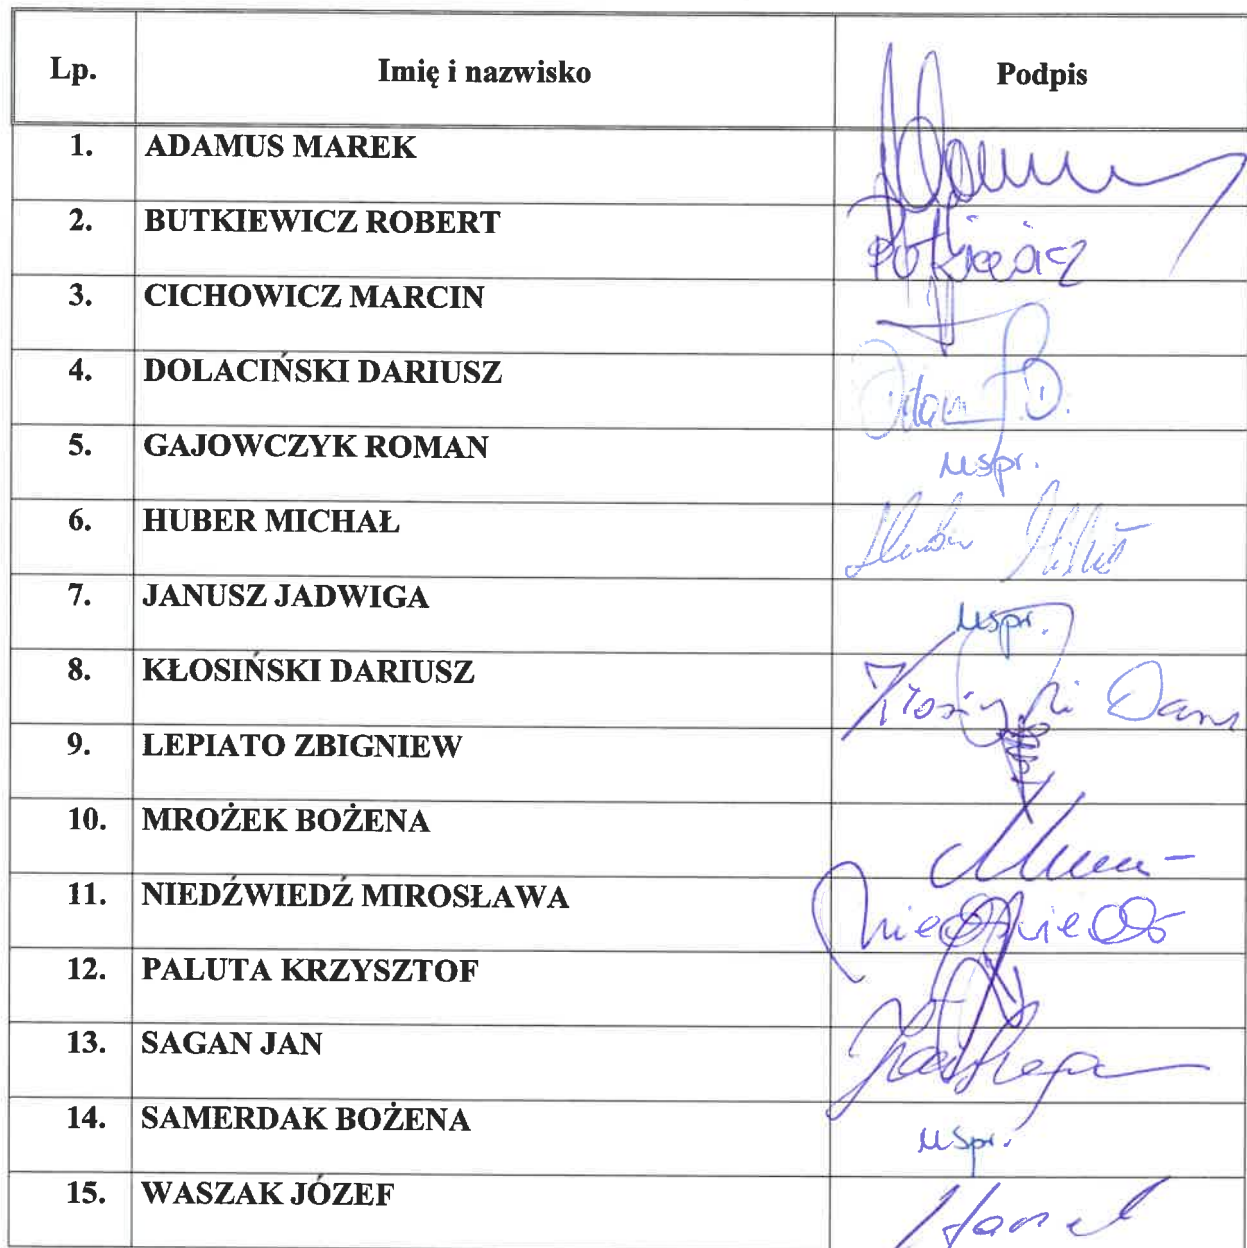 Lp. Imię i nazwisko Podpis
1. ADAMUS MAREK
2. BUTKIEWICZ ROBERT
3. CICHOWICZ MARCIN
4. DOLACIŃSKI DARIUSZ
5. GAJOWCZYK ROMAN uspr.
6. HUBER MICHAŁ
7. JANUSZ JADWIGA uspr.
8. KŁOSIŃSKI DARIUSZ
9. LEPIATO ZBIGNIEW
10. MROŻEK BOŻENA
11. NIEDŹWIEDŹ MIROSŁAWA
12. PALUTA KRZYSZTOF
13. SAGAN JAN
14. SAMERDAK BOŻENA uspr.
15. WASZAK JÓZEF